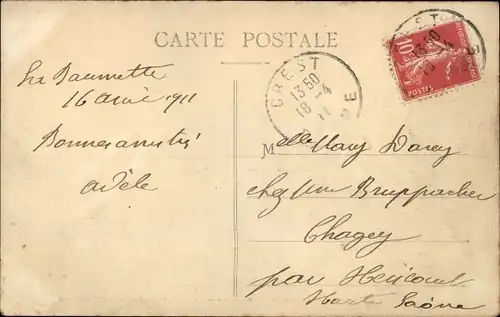 CARTE POSTALE
La Baumette
16 avril 1911
Bonnes amitiés
adèle
CREST
13 50
18 - 4
E
10
POSTES
Melle Mary Darcy
chez Mme Bruppacher
Chagey
par Héricourt
Haute Saône